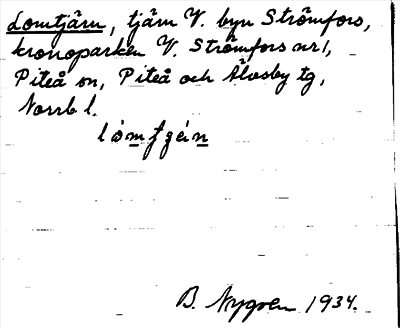 Lomtjärn, tjärn V. byn Strömfors,
kronoparken V. Strömfors nr 1,
Piteå sn, Piteå och Älvsby tg,
Norrb l.
B. Nygren 1934.